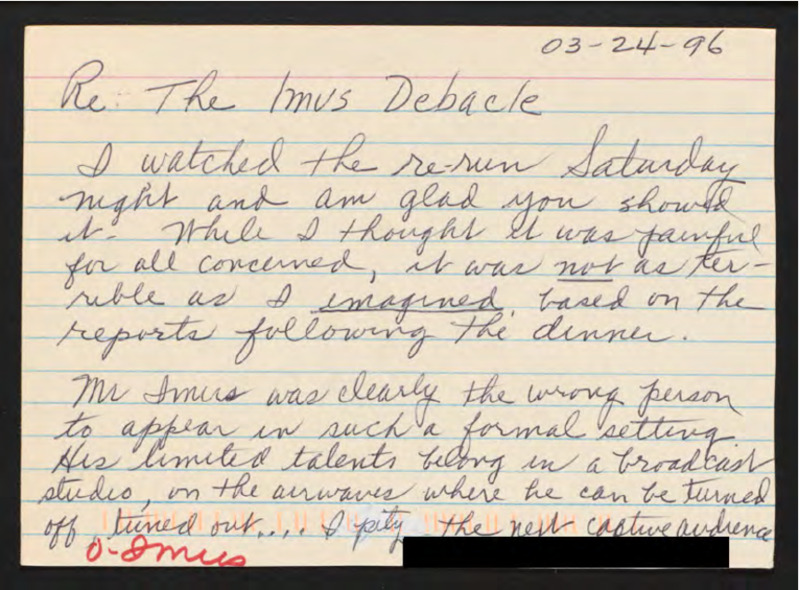 03-24-96
Re: The Imus Debacle
I watched the re-run Saturday
night and am glad you showed
it. While I thought it was painful
for all concerned, it was not as ter-
rible as I imagined, based on the
reports following the dinner.
Mr Imus was clearly the wrong person
to appear in such a formal setting.
His limited talents belong in a broadcast
studio, on the airwaves where he can be turned
off, tuned out.... I pity the next captive audience
O-Imus